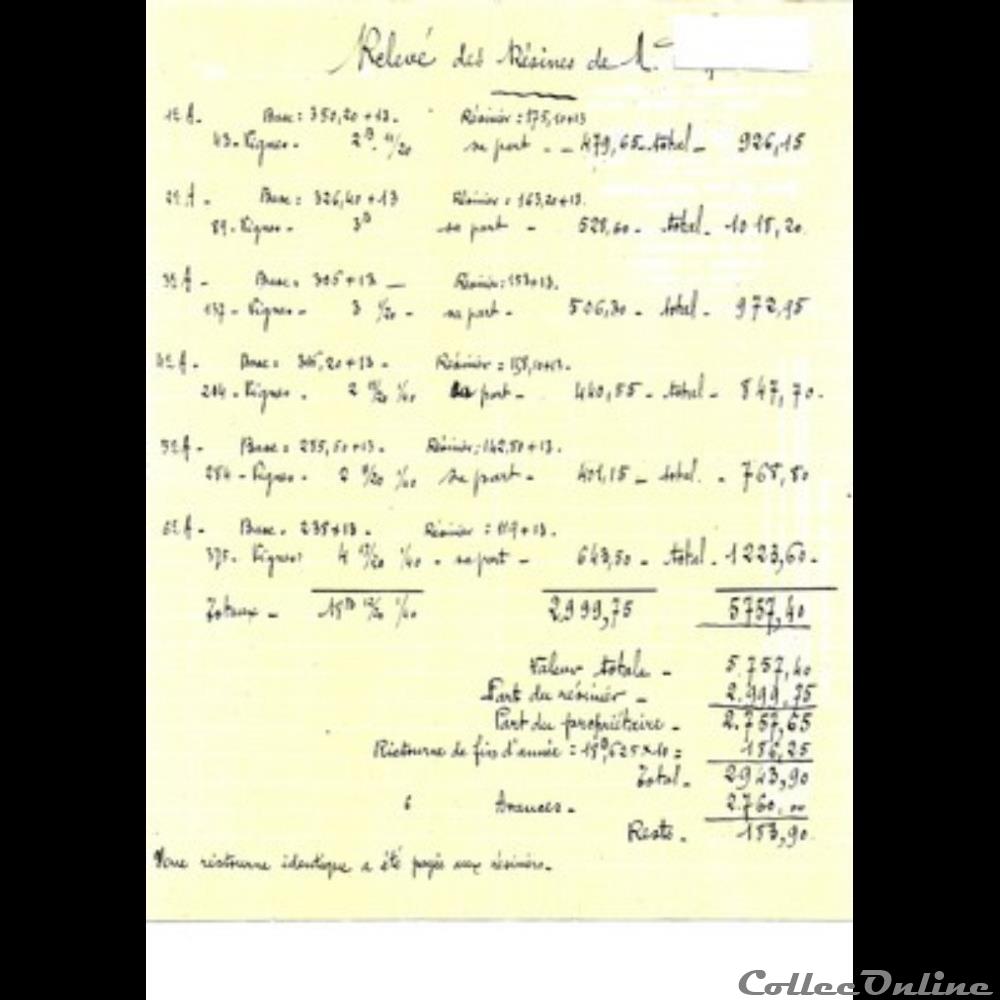 Relevé des Résines de M.
1e A - Base = 350,20 + 13 - Résinier = 175,10 + 13
43 - Vignes - 2 B 11/20 sa part - - 479,65 - total - 926,15
2e A - Base = 326,40 + 13 Résinier = 163,20 + 13.
89 - Vignes - 3 B sa part - 528,60 - total - 1018,20
3e A - Base = + 13 - Résinier = 153 + 13.
137 - Vignes - 3 1/20 - sa part - 506,30 - total - 972,95
4e A - Base = + 13 - Résinier =
Vignes - 2 1/40 sa part - 440,55 - total - 847,70 -
5e A - Base = + 13 - Résinier = 142,80 + 13.
284 - Vignes - 2 9/20 1/40 sa part - 401,15 - total - 768,80
6e A - Base = 238 + 13 - Résinier = 119 + 13.
Vignes 4 1/40 - sa part - 643,50 - total - 1223,60 -
Totaux - 18 B 12/20 1/40 2.999,75 5757,40
Valeur totale - 5.757,40
Part du résinier - 2.999,75
Part du propriétaire - 2.757,65
Ristourne de fin d'année = 18 B,625 x 10 = 186,25
Total - 2943,90
6 Avances - 2.760,00
Reste - 183,90
Une ristourne identique a été payée aux résiniers.
CollecOnline